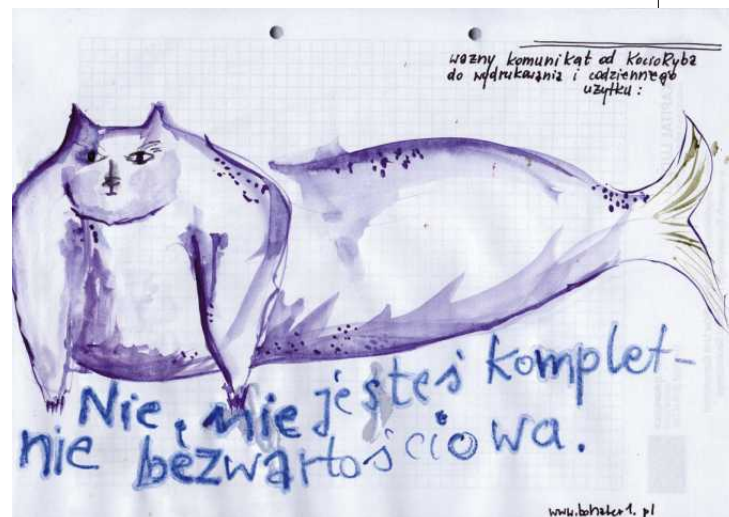 ważny komunikat od KocioRyba
do wydrukowania i codziennego
użytku:
Nie, nie jesteś komplet-
nie bezwartościowa.